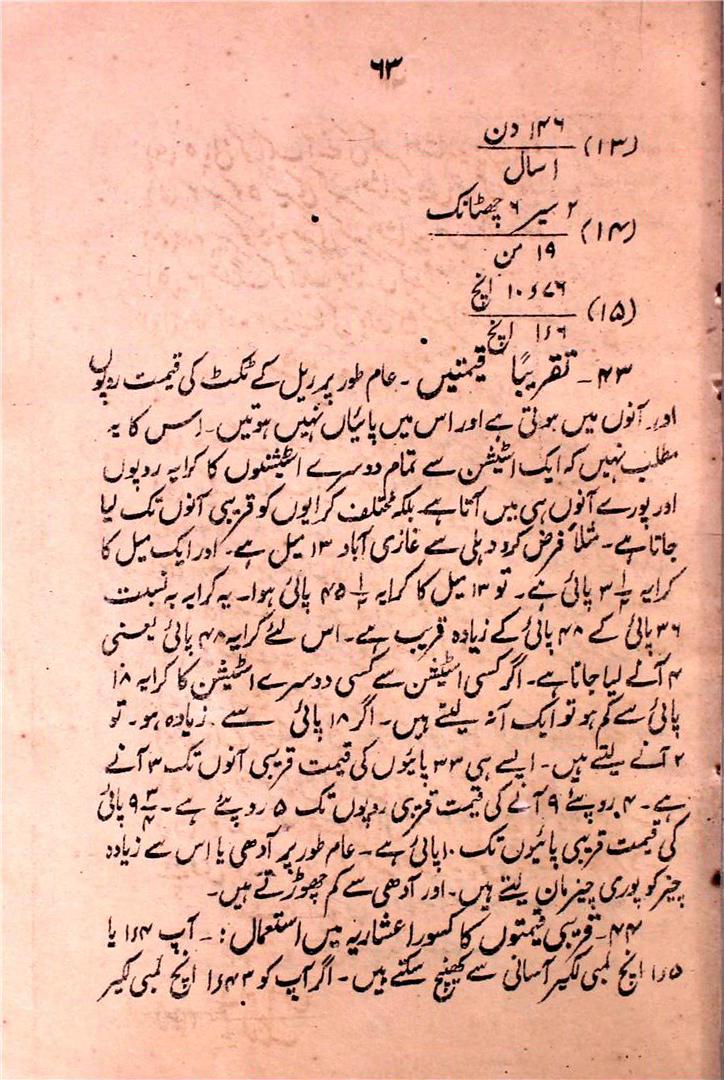 ۶۳
(۱۳) ۱۴۶ دن
۱ سال
(۱۴) ۲ سیر ۶ چھٹانک
۱۹ من
(۱۵) ۱۰ء۷۶ انچ
۱ء۶ انچ
۴۳۔ تقریباً قیمتیں ۔ عام طور پر ریل کے ٹکٹ کی قیمت روپوں
اور آنوں میں ہوتی ہے اور اس میں پائیاں نہیں ہوتیں۔ اس کا یہ
مطلب نہیں کہ ایک اسٹیشن سے تمام دوسرے اسٹیشنوں کا کرایہ روپوں
اور پورے آنوں ہی میں آتا ہے بلکہ مختلف کرایوں کو قریبی آنوں تک لیا
جاتا ہے۔ مثلاً فرض کرو دہلی سے غازی آباد ۱۳ میل ہے۔ اور ایک میل کا
کرایہ ۳ ۱/۲ پائی ہے۔ تو ۱۳ میل کا کرایہ ۴۵ ۱/۲ پائی ہوا۔ یہ کرایہ بہ نسبت
۳۶ پائی کے ۴۸ پائی کے زیادہ قریب ہے۔ اس لئے کرایہ ۴۸ پائی یعنی
۴ آنے لیا جاتا ہے۔ اگر کسی اسٹیشن سے کسی دوسرے اسٹیشن کا کرایہ ۱۸
پائی سے کم ہو تو ایک آنہ لیتے ہیں۔ اگر ۱۸ پائی سے زیادہ ہو۔ تو
۲ آنے لیتے ہیں۔ ایسے ہی ۳۳ پائیوں کی قیمت قریبی آنوں تک ۳ آنے
ہے۔ ۴ روپئے ۹ آنے کی قیمت قریبی روپوں تک ۵ روپئے ہے۔ ۹ ۳/۴ پائی
کی قیمت قریبی پائیوں تک ۱۰ پائی ہے۔ عام طور پر آدھی یا اس سے زیادہ
چیز کو پوری چیز مان لیتے ہیں۔ اور آدھی سے کم چھوڑتے ہیں۔
۴۴۔ قریبی قیمتوں کا کسور اعشاریہ میں استعمال :۔ آپ ۱ء۴ یا
۱ء۵ انچ لمبی لکیر آسانی سے کھینچ سکتے ہیں۔ اگر آپ کو ۱ء۴۳ انچ لمبی لکیر